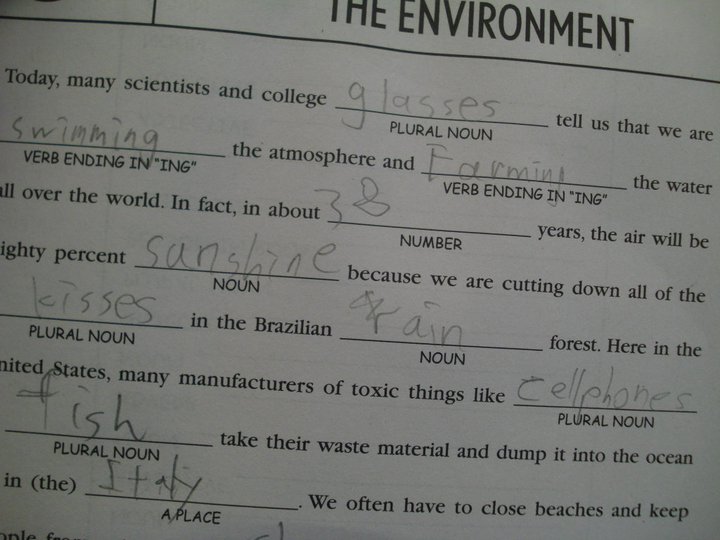 THE ENVIRONMENT
Today, many scientists and college glasses tell us that we are
PLURAL NOUN
swimming the atmosphere and Farming the water
VERB ENDING IN "ING" VERB ENDING IN "ING"
all over the world. In fact, in about 38 years, the air will be
NUMBER
ighty percent sunshine because we are cutting down all of the
NOUN
kisses in the Brazilian rain forest. Here in the
PLURAL NOUN NOUN
nited States, many manufacturers of toxic things like cellphones
PLURAL NOUN
fish take their waste material and dump it into the ocean
PLURAL NOUN
in (the) Italy . We often have to close beaches and keep
A PLACE